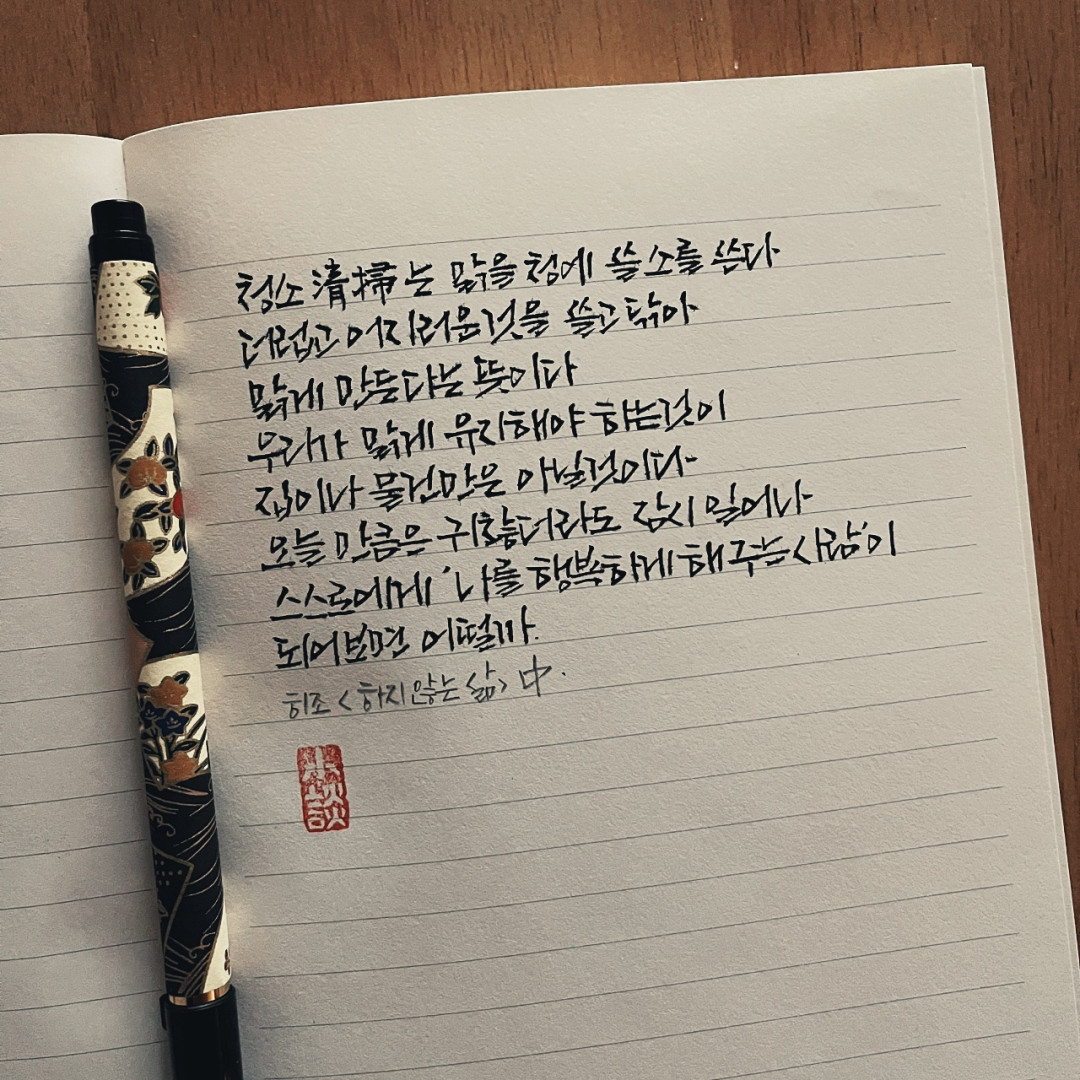 청소 清掃 는 맑을 청에 쓸 소를 쓴다
더럽고 어지러운것을 쓸고 닦아
맑게 만든다는 뜻이다
우리가 맑게 유지해야 하는것이
집이나 물건만은 아닐것이다
오늘 만큼은 귀찮더라도 잠시 일어나
스스로에게 '나를 행복하게 해 주는 사람'이
되어보면 어떨까.
히조 <하지 않는 삶> 中.